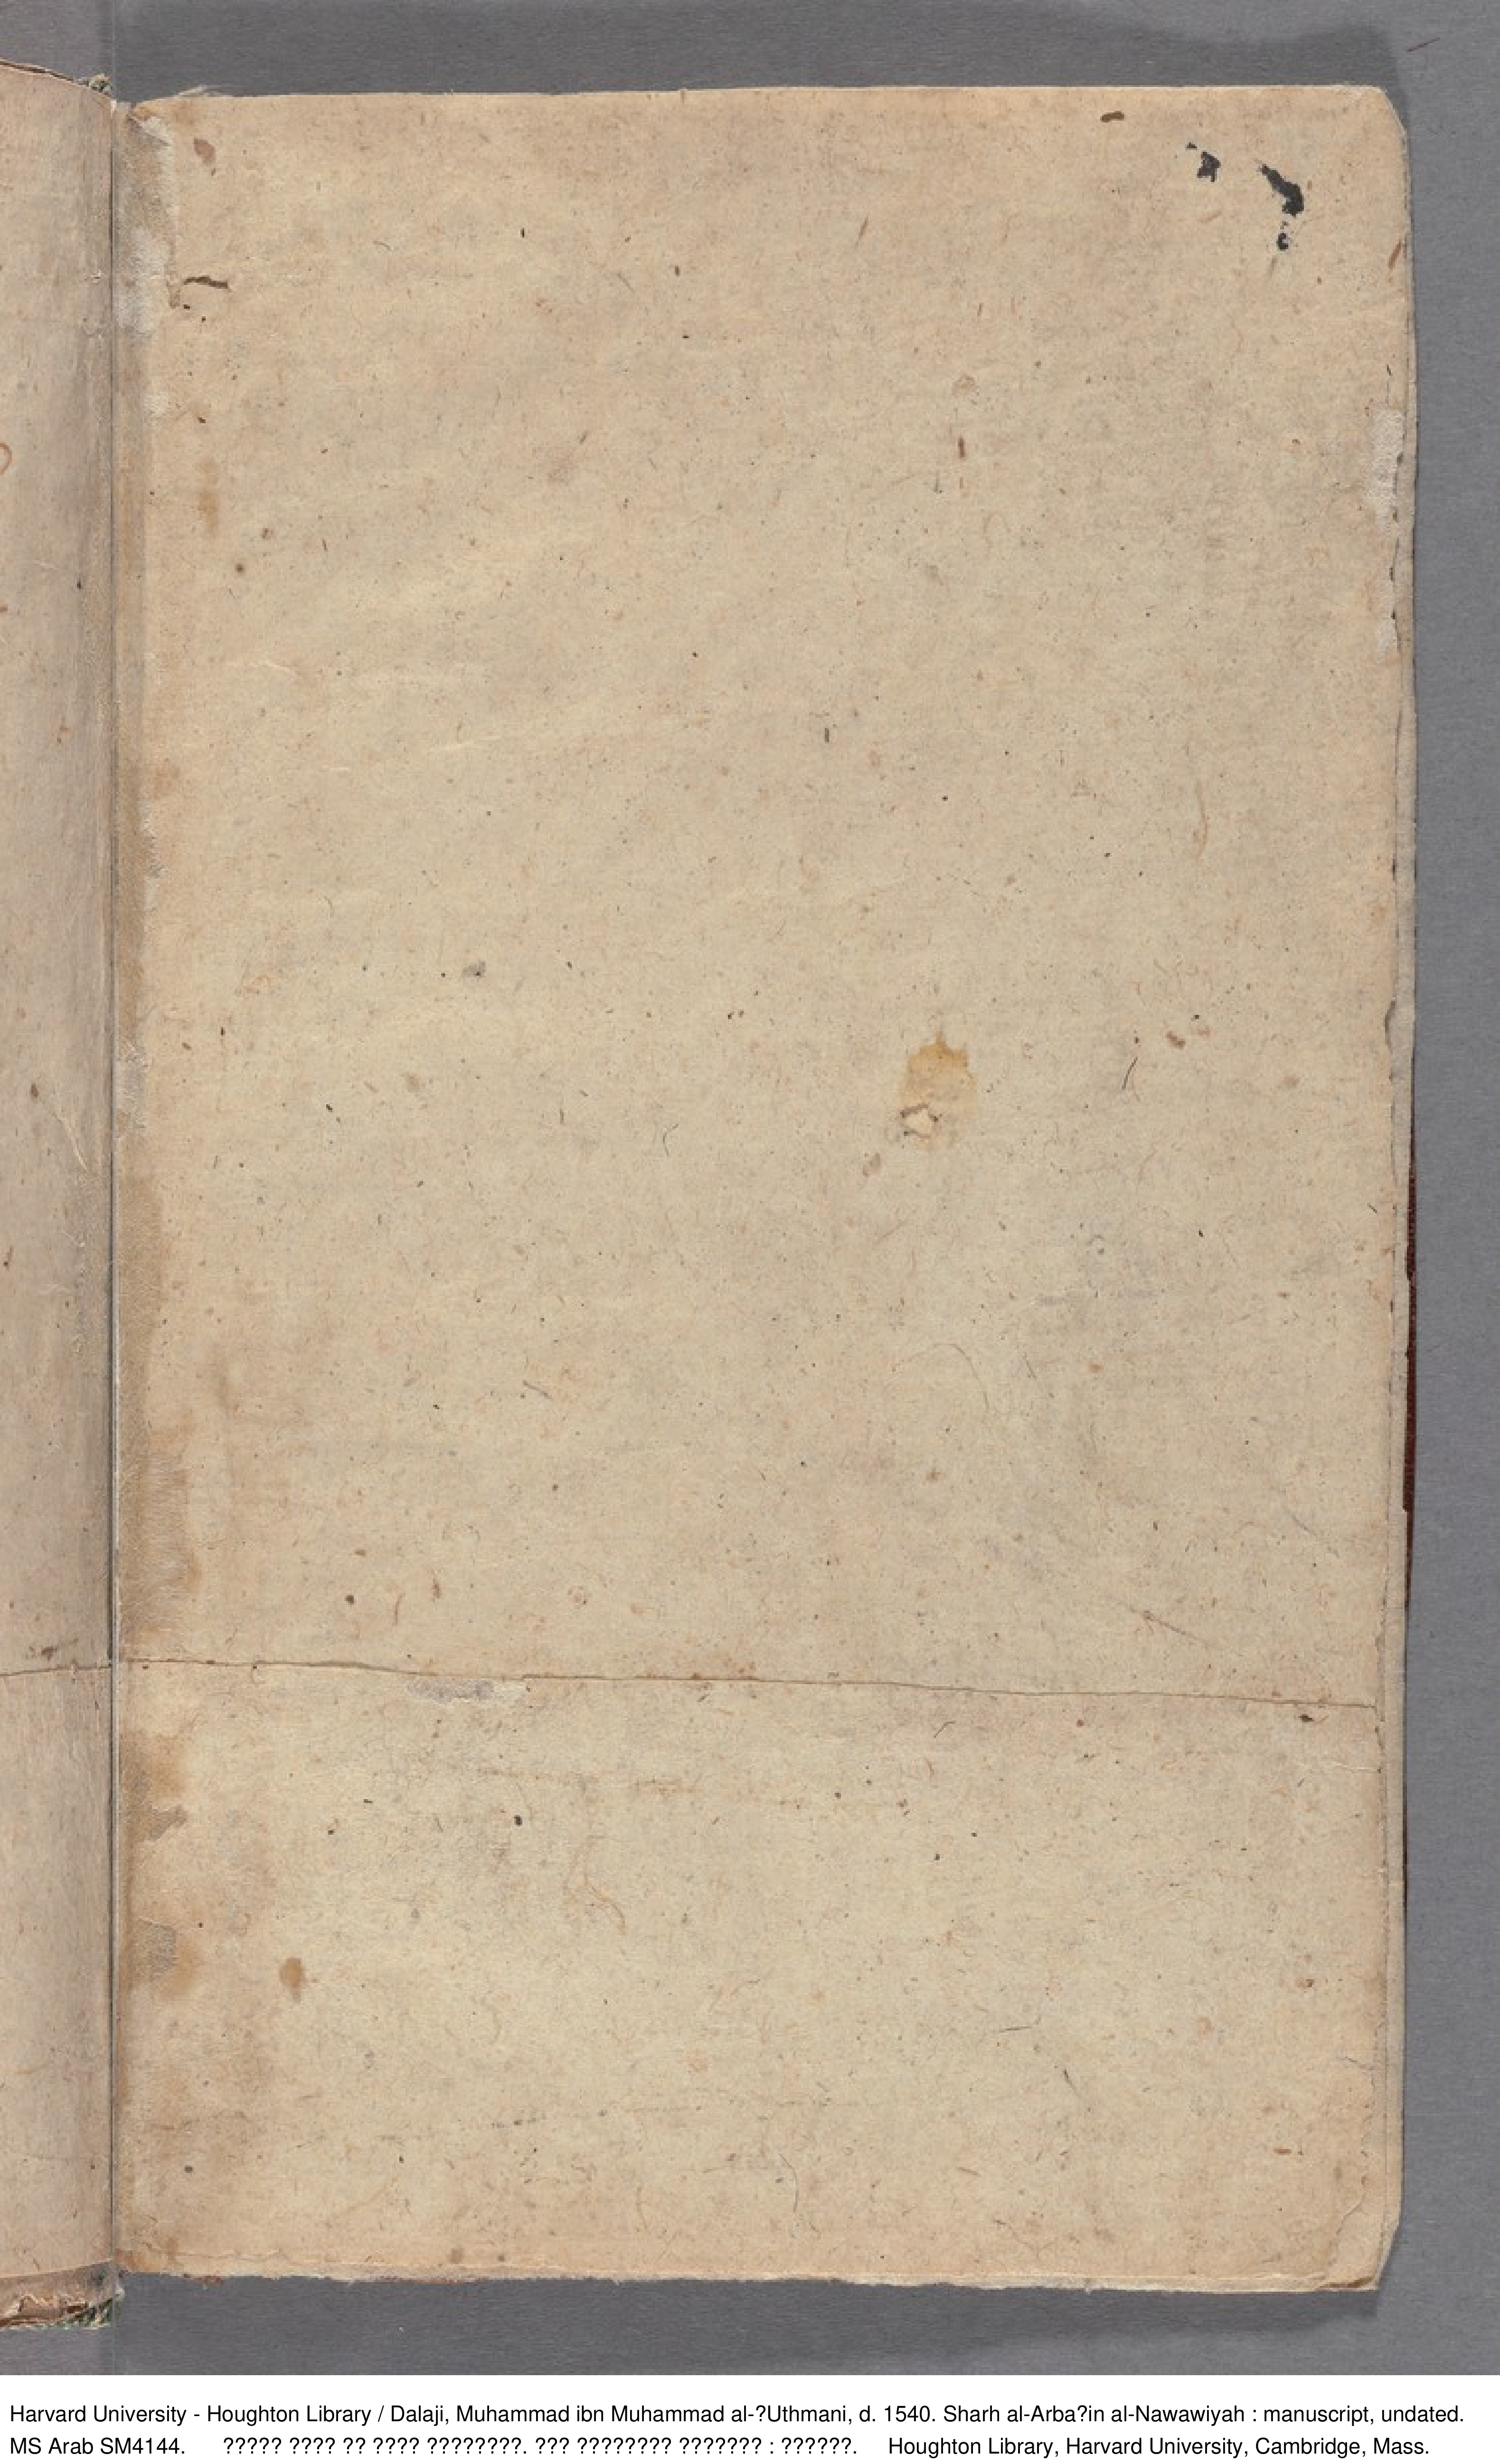 Harvard University - Houghton Library / Dalaji, Muhammad ibn Muhammad al-?Uthmani, d. 1540. Sharh al-Arba?in al-Nawawiyah : manuscript, undated.
MS Arab SM4144. ????? ???? ?? ???? ????????. ??? ???????? ??????? : ??????. Houghton Library, Harvard University, Cambridge, Mass.